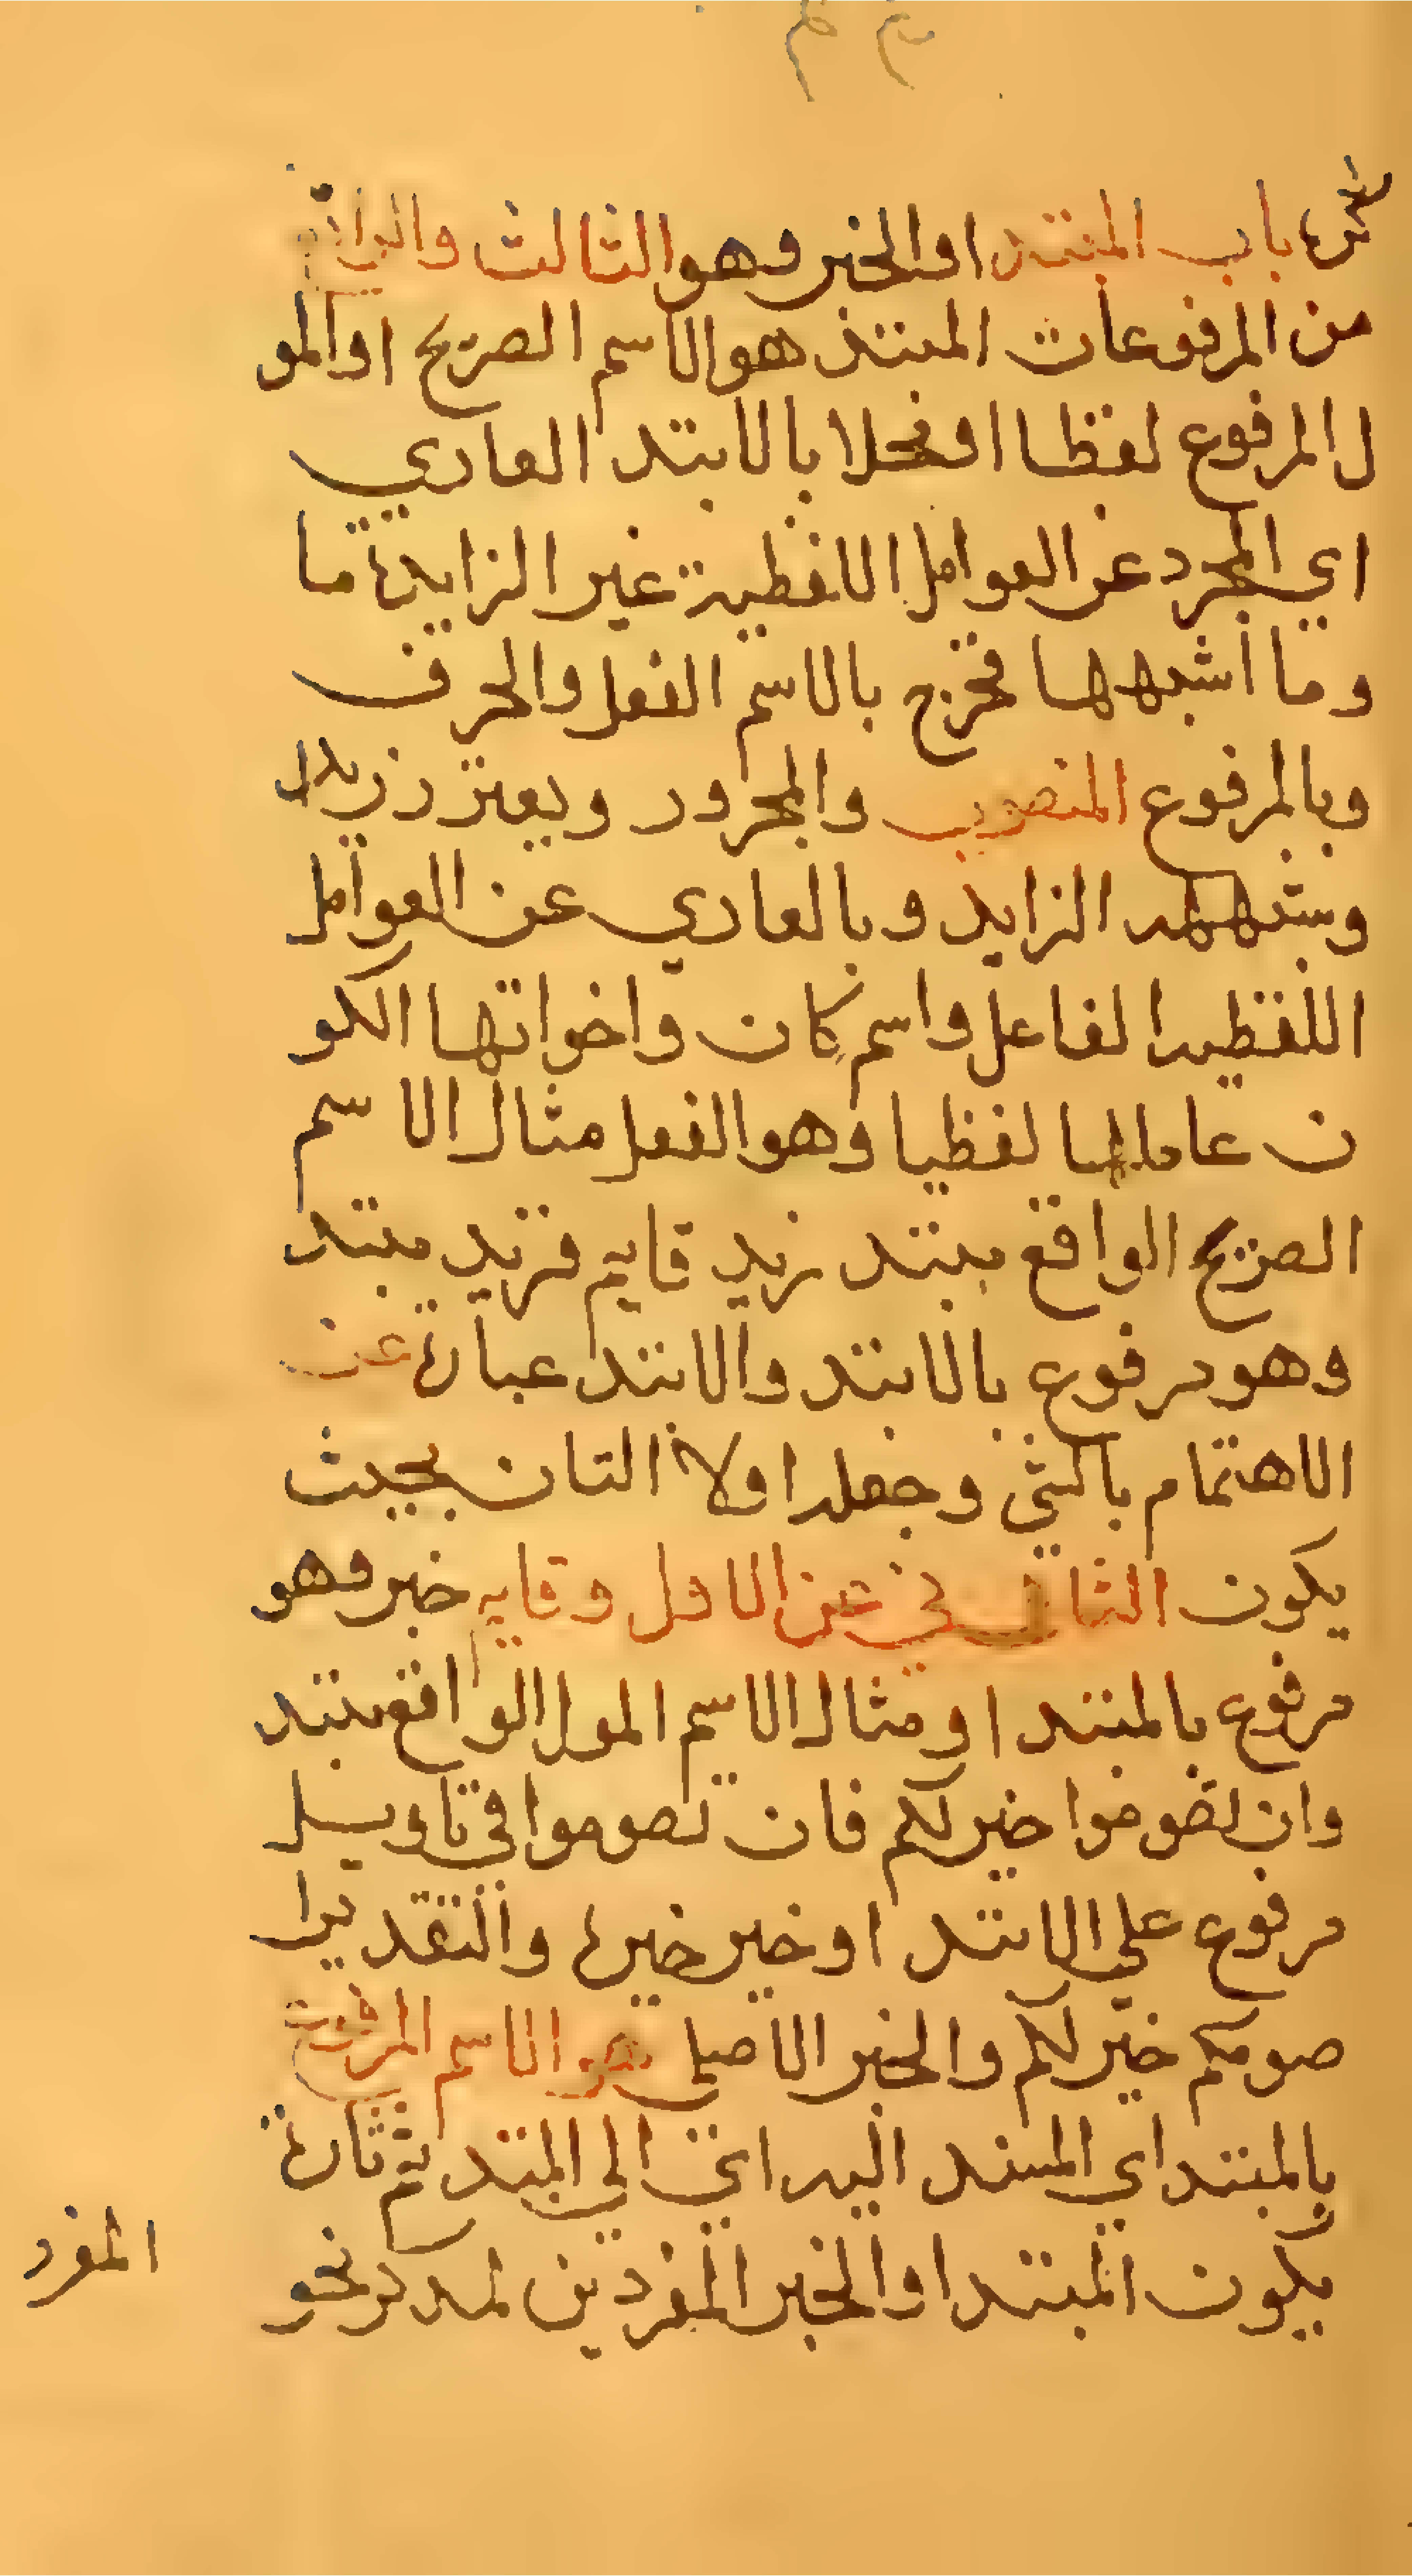 باب المبتد اوالخبر وهو الثالث والرابع
من المرفوعات المبتد هو الاسم الصريح اوالمو
ل المرفوع لفظا او محلا بالابتد العاري
اي المجرد عن العوامل اللفظية غير الزايدة ما
وما اشبهها فخرج بالاسم الفعل والحرف
وبالمرفوع المنصوب والمجرور
الزايد وبالعاري عن العوامل
اللفظيه الفاعل واسم كان واخواتها الكو
ن عاملها لفظيا وهو الفعل مثال الاسم
الصريح الواقع مبتد زيد قايم فزيد مبتد
وهو مرفوع بالابتد والابتد عبارة عن
الاهتمام بالشي وجعله اولا لثان بحيث
يكون الثاني عن الاول وقايم خبر وهو
مرفوع بالمبتد ا ومثال الاسم المول الواقع مبتد
وان تصوموا خير لكم فان تصوموا في تاويل
مرفوع علي الابتد ا وخير خبره والتقدير ا
صومكم خير لكم والخبر الاصلي هو الاسم المرفوع
بالمبتد اي المسند اليه اي الي المبتد ثم تارة
يكون المبتدا والخبر المفردين لمدكر نحو
المفرد